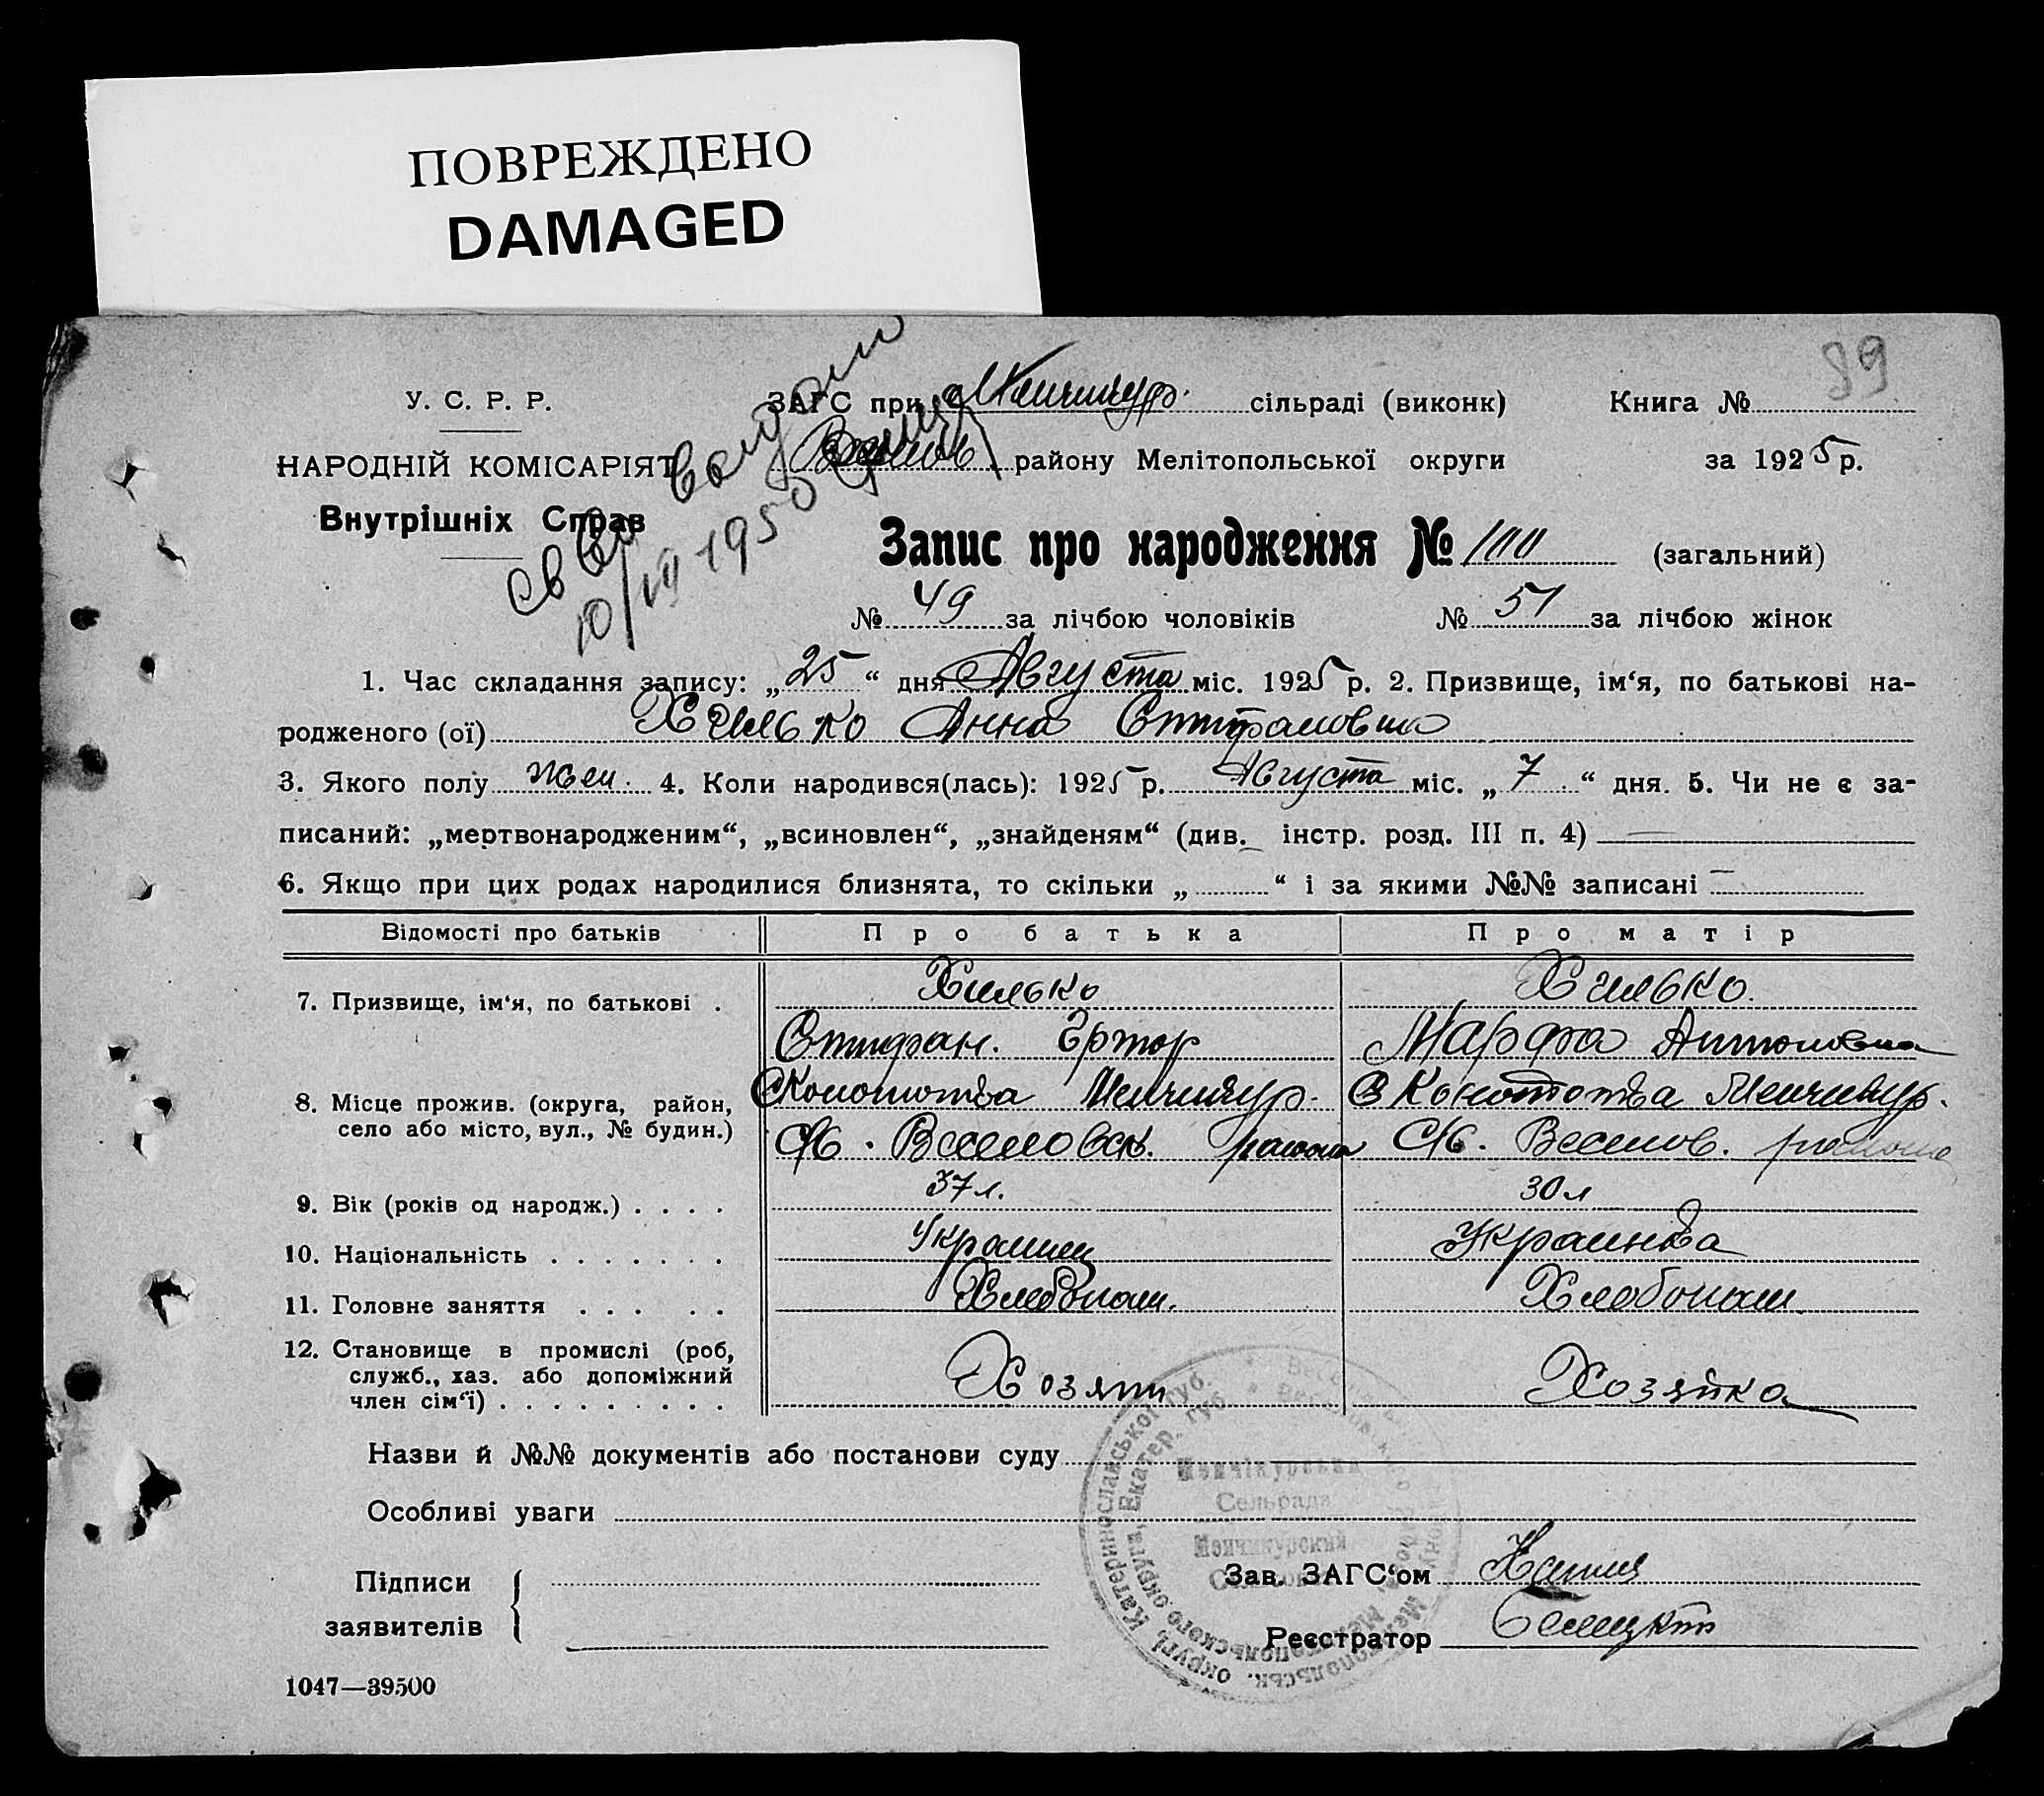 ПОВРЕЖДЕНО
DAMAGED
89
У. С. Р. Р.
ЗАГС при Менчикур. сільраді (виконк)
Книга №
НАРОДНІЙ КОМІСАРІЯТ
Веселов. району Мелітопольської округи
за 1925 р.
Внутрішніх Справ
Св Во выдан
10/VII 1950
Запис про народження № 100 (загальний)
№ 49 за лічбою чоловіків № 51 за лічбою жінок
1. Час складання запису: „25“ дня Августа міс. 1925 р. 2. Призвище, ім‘я, по батькові на-
родженого (ої) Хилько Анна Стифановна
3. Якого полу жен. 4. Коли народився(лась): 1925 р. Августа міс. „7“ дня. 5. Чи не є за-
писаний: „мертвонародженим“, „всиновлен“, „знайденям“ (див. інстр. розд. III п. 4)
6. Якщо при цих родах народилися близнята, то скільки „ “ і за якими №№ записані
Відомості про батьків Про батька Про матір
7. Призвище, ім‘я, по батькові . Хилько Хилько.
Стифан. Марфа Антоновна
8. Місце прожив. (округа, район, Менчикур. Менчикур.
село або місто, вул., № будин.) С/С. Веселовск. района С/С. Веселов. района
9. Вік (років од народж.) . . . . 37 л. 30 л
10. Національність . . . . . . . Украинец Украинка
11. Головне заняття . . . . . Хлебопаш. Хлебопаш.
12. Становище в промислі (роб, служб., хаз. або допоміжний член сім‘ї) . . . . . . . . . Хозяин Хозяйка
Назви й №№ документів або постанови суду
Особливі уваги
Менчікурська
Сельрада
Менчикурский
Підписи
заявителів
Зав. ЗАГС‘ом
Реєстратор
1047—39500